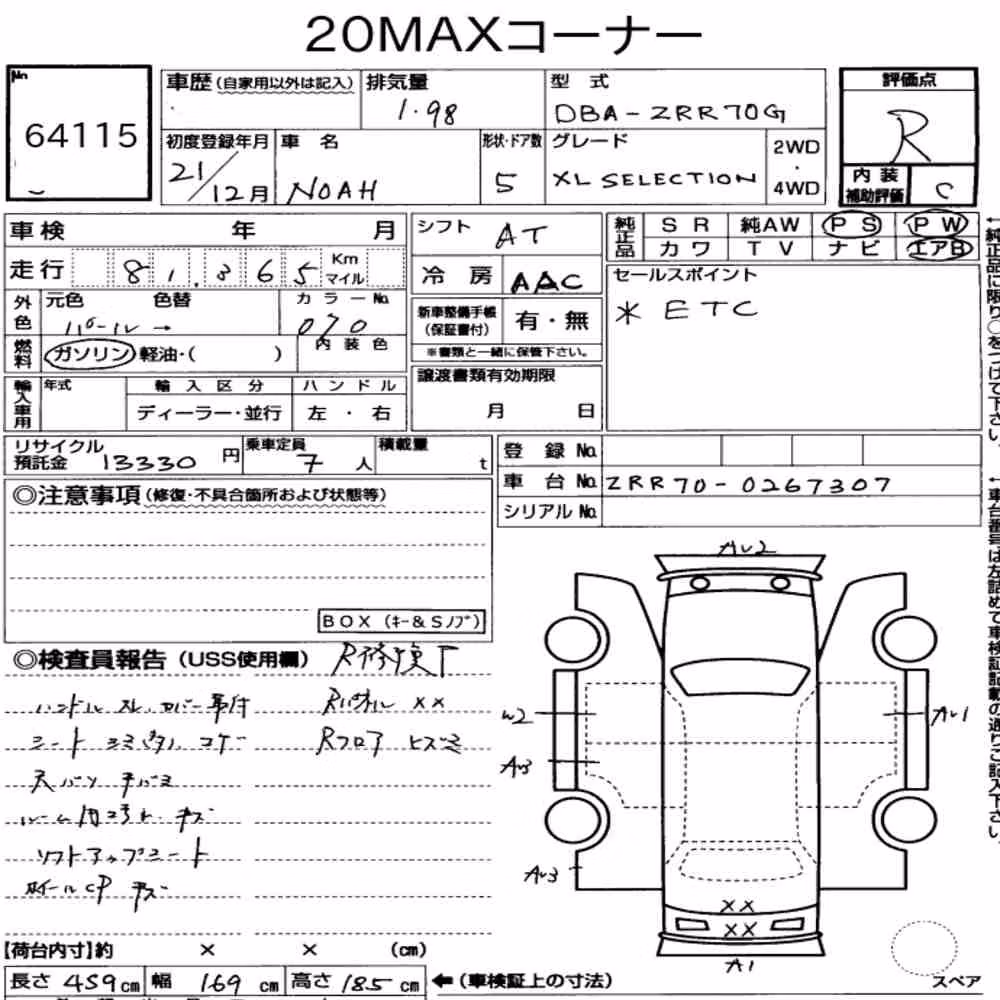 20MAXコーナー
No.
64115
車歴 (自家用以外は記入)
排気量
1.98
型式
DBA-ZRR70G
評価点
R
初度登録年月
21/12月
車名
NOAH
形状・ドア数
5
グレード
XL SELECTION
2WD
・
4WD
内装
補助評価
C
車検 年 月
シフト
AT
純正品
SR 純AW PS PW
カワ TV ナビ エアB
走行 81,365 Km
マイル
冷房
AAC
セールスポイント
* ETC
外色
元色 色替
パール →
カラーNo.
070
新車整備手帳
(保証書付)
有・無
※書類と一緒に保管下さい。
燃料
ガソリン・軽油・( )
内装色
譲渡書類有効期限
月 日
輸入車用
年式
輸入区分
ハンドル
ディーラー・並行
左・右
リサイクル
預託金 13330 円
乗車定員
7人
積載量
t
登録No.
車台No. ZRR70-0267307
シリアルNo.
◎注意事項 (修復・不具合箇所および状態等)
BOX (キー&Sノブ)
◎検査員報告 (USS使用欄)
R修復
ハンドル スレ カバー
Rパネル XX
シート シミ コゲ
Rフロア ヒズミ
キズ
ソフトアップシート
ホイールCP キズ
【荷台内寸】約 × × (cm)
長さ 459cm 幅 169cm 高さ 185cm
←(車検証上の寸法)
AU2
W2
AU3
AU1
AU3
XX
XX
A1
スペア
←純正品に限り○をつけて下さい。
←車台番号は左詰めで車検証記載の通りご記入下さい。